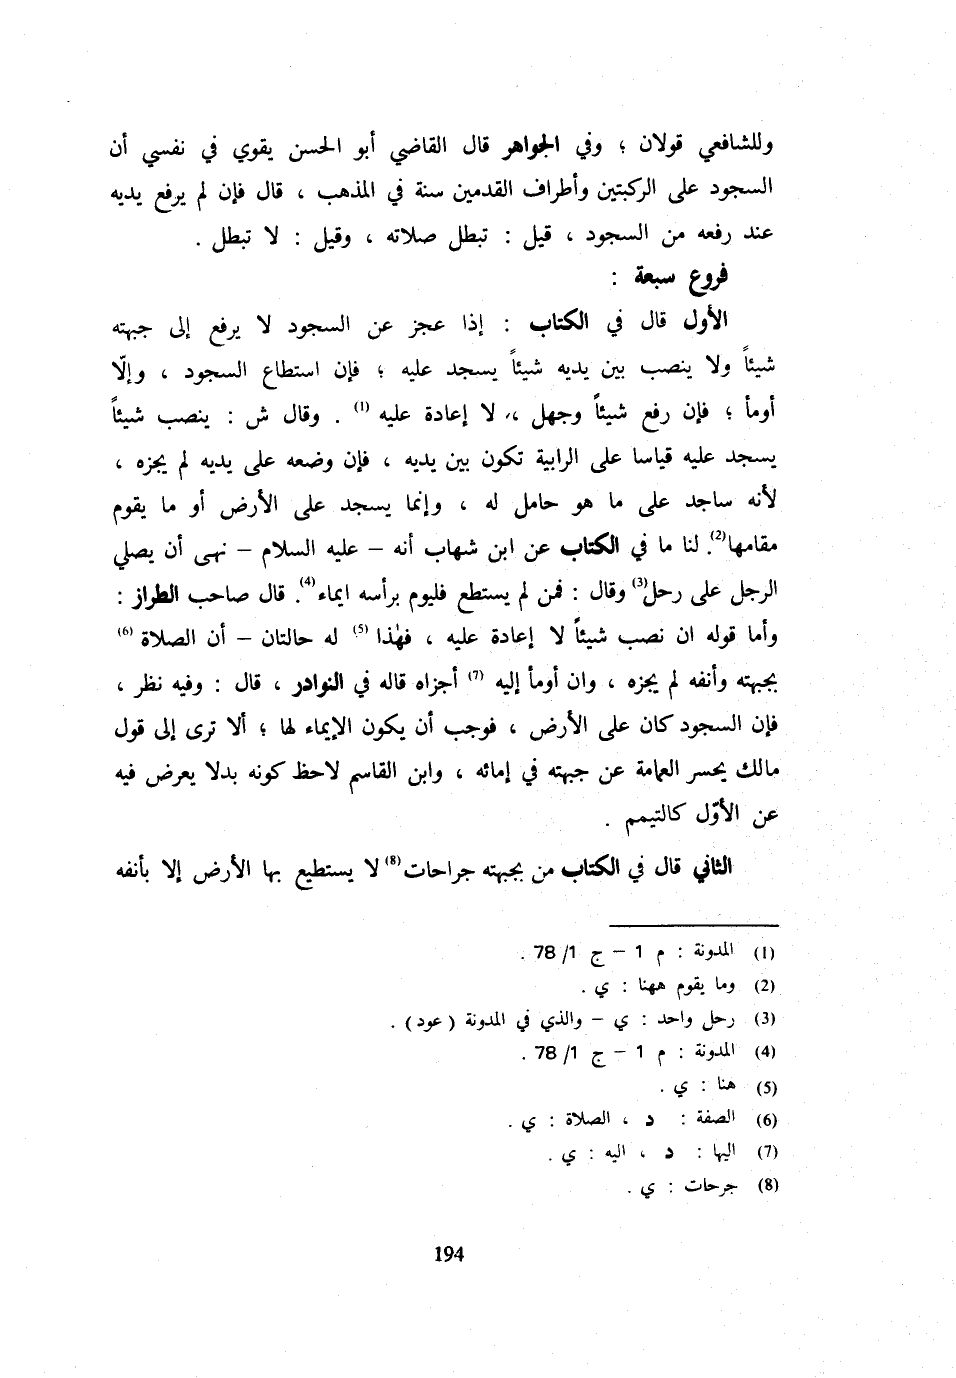 وللشافعي قولان ؛ وفي الجواهر قال القاضي أبو الحسن يقوي في نفسي أن
السجود على الركبتين وأطراف القدمين سنة في المذهب ، قال فإن لم يرفع يديه
عند رفعه من السجود ، قيل : تبطل صلاته ، وقيل : لا تبطل .
فروع سبعة :
الأول قال في الكتاب : إذا عجز عن السجود لا يرفع إلى جبهته
شيئاً ولا ينصب بين يديه شيئاً يسجد عليه ؛ فإن استطاع السجود ، وإلّا
أومأ ؛ فإن رفع شيئاً وجهل ، لا إعادة عليه (1) . وقال ش : ينصب شيئاً
يسجد عليه قياسا على الرابية تكون بين يديه ، فإن وضعه على يديه لم يجزه ،
لأنه ساجد على ما هو حامل له ، وإنما يسجد على الأرض أو ما يقوم
مقامها(2). لنا ما في الكتاب عن ابن شهاب أنه – عليه السلام – نهى أن يصلي
الرجل على رحل(3) وقال : فمن لم يستطع فليوم برأسه ايماء(4). قال صاحب الطراز :
وأما قوله ان نصب شيئاً لا إعادة عليه ، فهٰذا (5) له حالتان – أن الصلاة (6)
بجبهته وأنفه لم يجزه ، وان أومأ إليه (7) أجزاه قاله في النوادر ، قال : وفيه نظر ،
فإن السجود كان على الأرض ، فوجب أن يكون الإيماء لها ؛ ألا ترى إلى قول
مالك يحسر العمامة عن جبهته في إمائه ، وابن القاسم لاحظ كونه بدلا يعرض فيه
عن الأوّل كالتيمم .
الثاني قال في الكتاب من بجبهته جراحات(8) لا يستطيع بها الأرض إلا بأنفه
(1) المدونة : م 1 – ج 1/ 78 .
(2) وما يقوم ههنا : ي .
(3) رحل واحد : ي – والذي في المدونة ( عود ) .
(4) المدونة : م 1 – ج 1/ 78 .
(5) هنا : ي .
(6) الصفة : د ، الصلاة : ي .
(7) اليها : د ، اليه : ي .
(8) جرحات : ي .
194